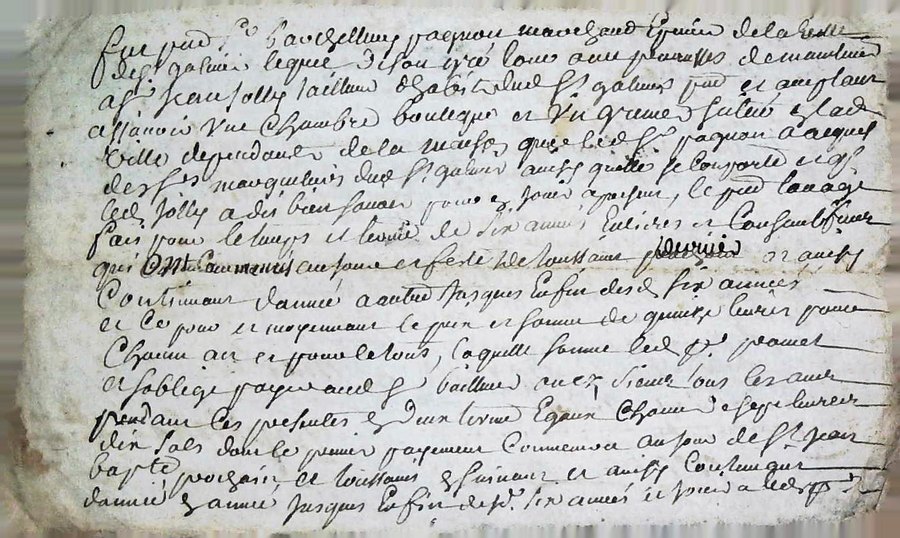 fut pnt Sr Barthellemy pagnon marchand Epicier de la ville
de St galmier lequel de son gré loue aux presentes de maniere
a Sr Jean Jolly tailleur dhabits dud St galmier pnt et acceptant
assavoir Une Chambre boutique et Un grenier situé aud
ville dependant de la maison que led Sr pagnon a acquis
des Srs marguilliers dud St galmier ainsy quelle se Comporte et q
led Jolly a dis bien savoir pour y jouir a present, le pnt louage
fait pour le temps et terme de six années Entieres et Consecutives
qui Ont Commencés au jour et feste de toussaint dernier et ainsy
Continuant dannée a autre Jusques Enfin desd six années
et Ce pour et moyennant le prix et somme de quinze livres pour
Chacun an et pour le tout, laquelle somme led pr promet
et soblige payer aud Sr bailleur en deux termes tous les ans
pendant Ces presentes Egaux Chacun de sept livres
dix sols dont le premier payement Commencera au jour de St Jean
bapte prochain et toussaint Ensuivant et ainsy Continuant
dannée En année Jusques Enfin desd six années et